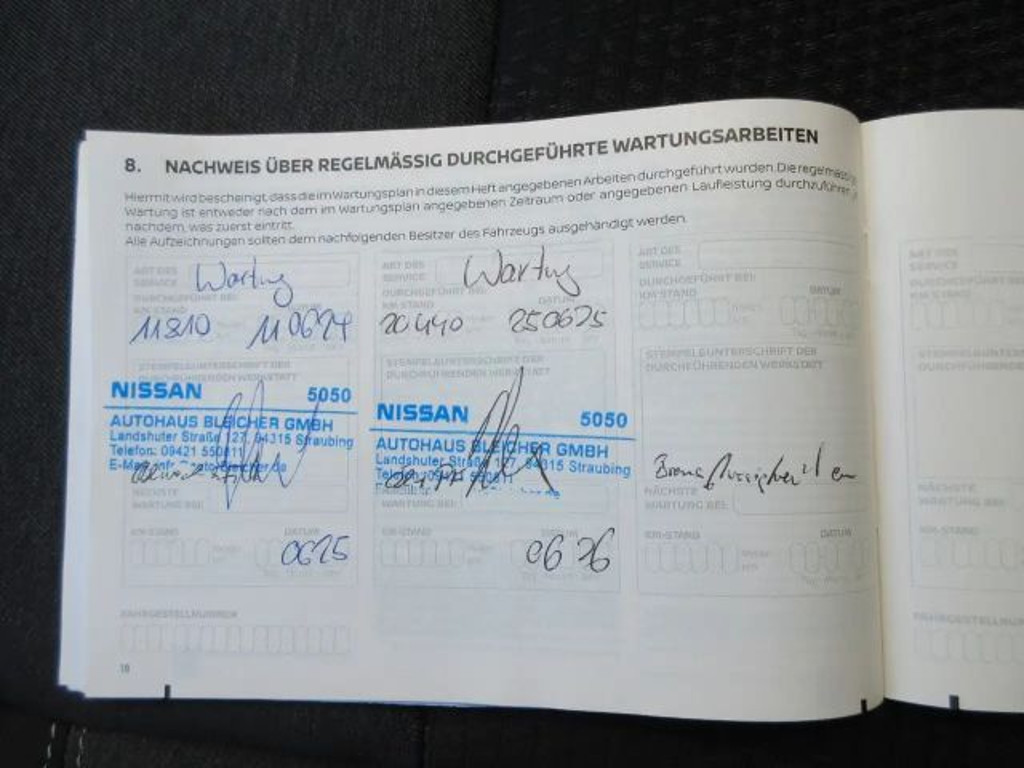 8. NACHWEIS ÜBER REGELMÄSSIG DURCHGEFÜHRTE WARTUNGSARBEITEN
Hiermit wird bescheinigt, dass die im Wartungsplan in diesem Heft angegebenen Arbeiten durchgeführt wurden. Die regelmässige
Wartung ist entweder nach dem im Wartungsplan angegebenen Zeitraum oder angegebenen Laufleistung durchzuführen, je
nachdem, was zuerst eintritt.
Alle Aufzeichnungen sollten dem nachfolgenden Besitzer des Fahrzeugs ausgehändigt werden.
ART DES
SERVICE
Wartung
DURCHGEFÜHRT BEI:
KM-STAND
DATUM
11810 110624
STEMPEL&UNTERSCHRIFT DER
DURCHFÜHRENDEN WERKSTATT
NISSAN 5050
AUTOHAUS BLEICHER GMBH
Landshuter Straße 127, 94315 Straubing
Telefon: 09421 550811
NÄCHSTE
WARTUNG BEI:
KM-STAND
DATUM
0625
FAHRGESTELLNUMMER
ART DES
SERVICE
Wartung
DURCHGEFÜHRT BEI:
KM-STAND
DATUM
20440 250625
STEMPEL&UNTERSCHRIFT DER
DURCHFÜHRENDEN WERKSTATT
NISSAN 5050
AUTOHAUS BLEICHER GMBH
Landshuter Straße 127, 94315 Straubing
Telefon: 09421 550811
WARTUNG BEI:
KM-STAND
DATUM
06 26
ART DES
SERVICE
DURCHGEFÜHRT BEI:
KM-STAND
DATUM
STEMPEL&UNTERSCHRIFT DER
DURCHFÜHRENDEN WERKSTATT
NÄCHSTE
WARTUNG BEI:
KM-STAND
DATUM
18
ART DES
SERVICE
DURCHGEFÜHRT
KM-STAND
NÄCHSTE
WARTUNG BEI:
KM-STAND